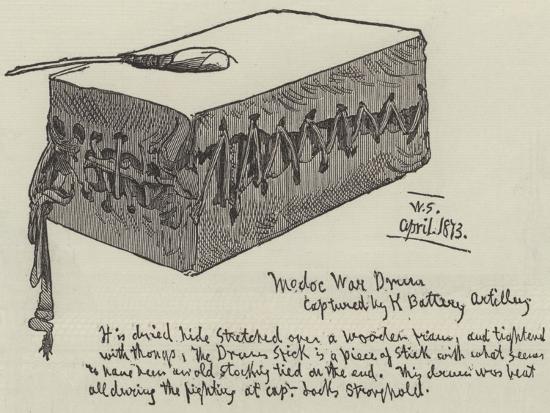 W.S.
April. 1873.
Modoc War Drum
Captured by K Battery Artillery
It is dried hide stretched over a wooden frame, and tightend
with thongs, The Drum Stick is a piece of stick with what seems
to have been an old stocking tied on the end. This drum was beat
all during the fighting at Cap. Jack's Stronghold.